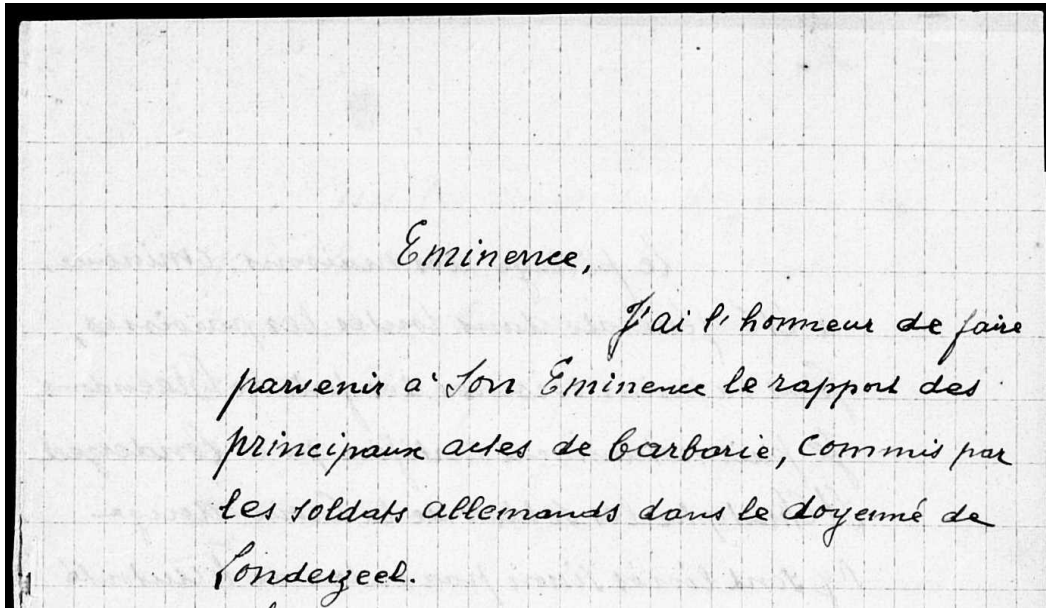 Eminence,
J'ai l'honneur de faire
parvenir à Son Eminence le rapport des
principaux actes de barbarie, commis par
les soldats allemands dans le doyenné de
Londerzeel.